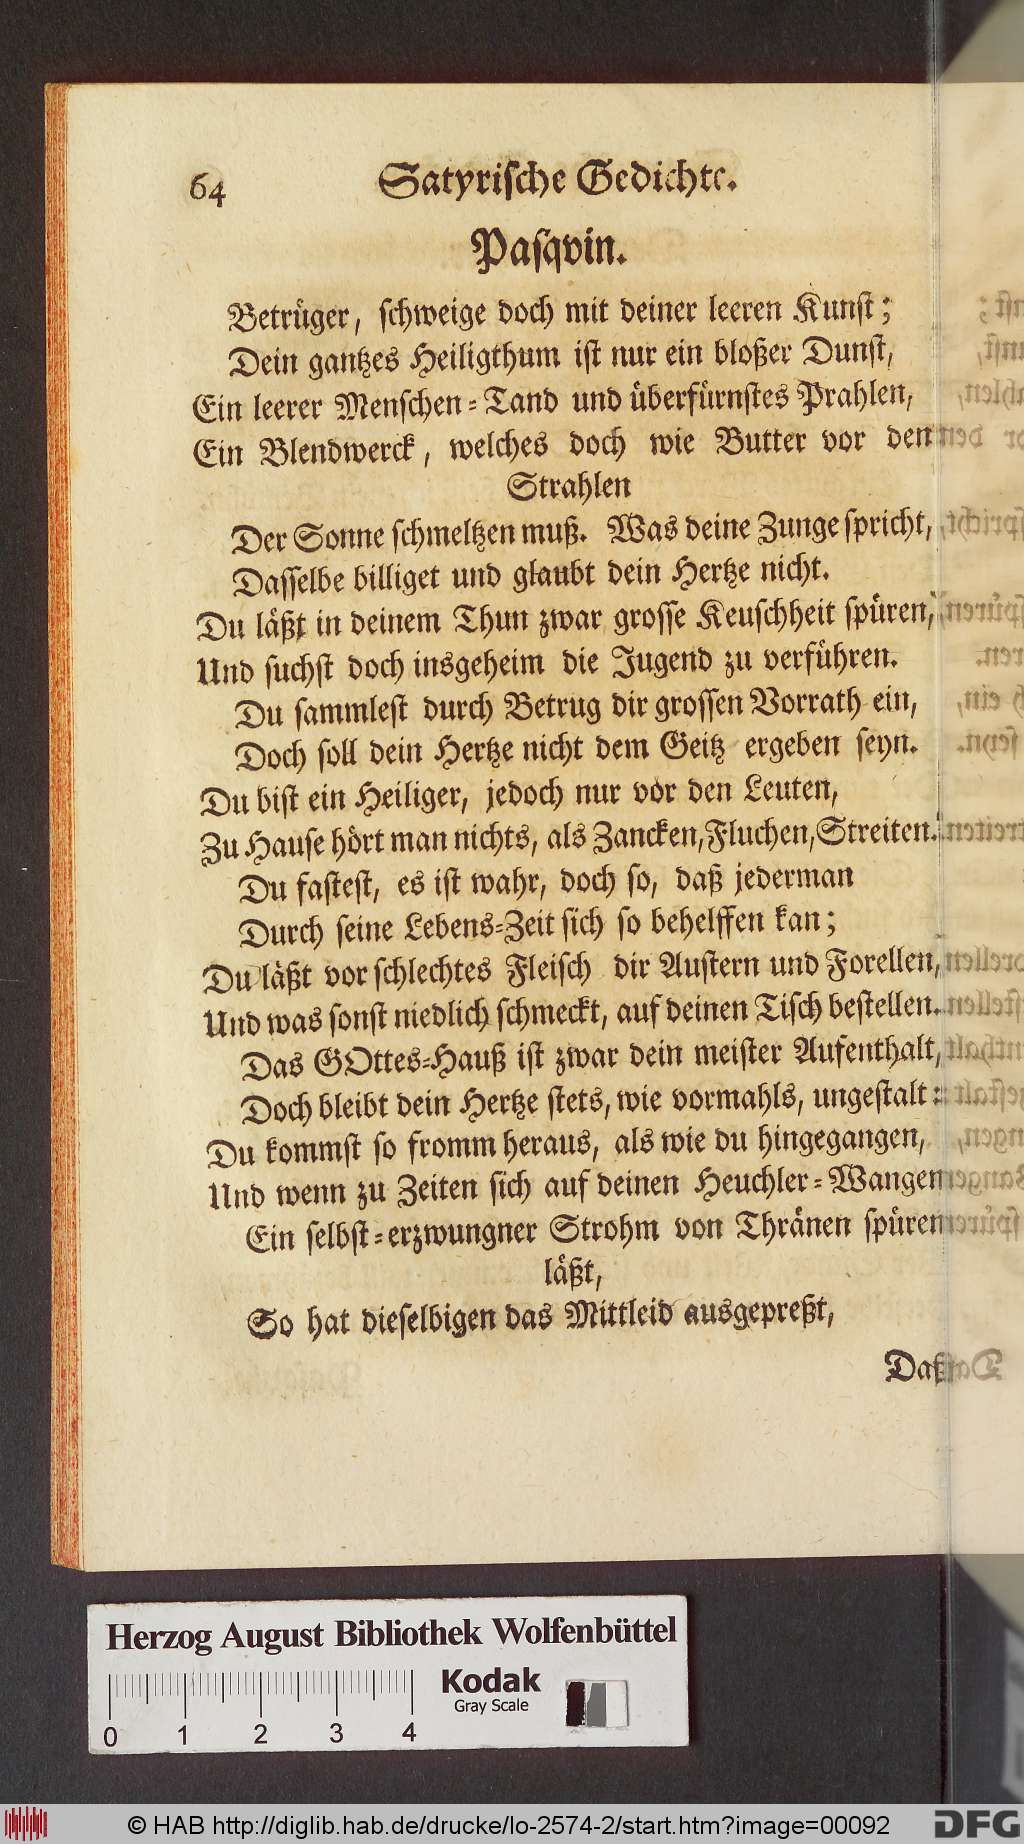 64 Satyrische Gedichte.
Pasqvin.
Betrüger, schweige doch mit deiner leeren Kunst;
Dein gantzes Heiligthum ist nur ein bloßer Dunst,
Ein leerer Menschen-Tand und überfürnstes Prahlen,
Ein Blendwerck, welches doch wie Butter vor den
Strahlen
Der Sonne schmeltzen muß. Was deine Zunge spricht,
Dasselbe billiget und glaubt dein Hertze nicht.
Du läßt in deinem Thun zwar grosse Keuschheit spüren,
Und suchst doch insgeheim die Jugend zu verführen.
Du sammlest durch Betrug dir grossen Vorrath ein,
Doch soll dein Hertze nicht dem Geitz ergeben seyn.
Du bist ein Heiliger, jedoch nur vor den Leuten,
Zu Hause hört man nichts, als Zancken, Fluchen, Streiten.
Du fastest, es ist wahr, doch so, daß jederman
Durch seine Lebens-Zeit sich so behelffen kan;
Du läßt vor schlechtes Fleisch dir Austern und Forellen,
Und was sonst niedlich schmeckt, auf deinen Tisch bestellen.
Das GOttes-Hauß ist zwar dein meister Aufenthalt,
Doch bleibt dein Hertze stets, wie vormahls, ungestalt:
Du kommst so fromm heraus, als wie du hingegangen,
Und wenn zu Zeiten sich auf deinen Heuchler-Wangen
Ein selbst-erzwungner Strohm von Thränen spüren
läßt,
So hat dieselbigen das Mittleid ausgepreßt,
Daß
Herzog August Bibliothek Wolfenbüttel
Kodak
Gray Scale
0 1 2 3 4
© HAB http://diglib.hab.de/drucke/lo-2574-2/start.htm?image=00092
DFG